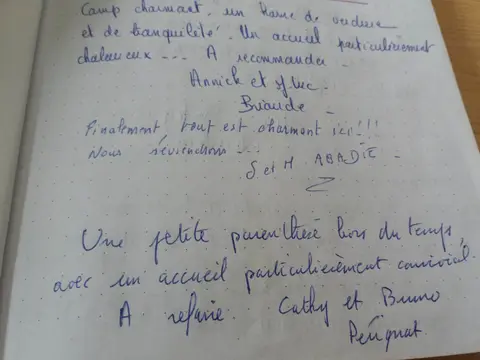 Camp charmant, un havre de verdure
et de tranquilité. Un accueil particulièrement
chaleureux... A recommander.
Annick et Luc.
Briande.
Finalement, tout est charmant ici!!!
Nous reviendrons...
S et M ABADIE.
Une petite parenthèse hors du temps,
avec un accueil particulièrement convivial.
A refaire. Cathy et Bruno
Pérignat.